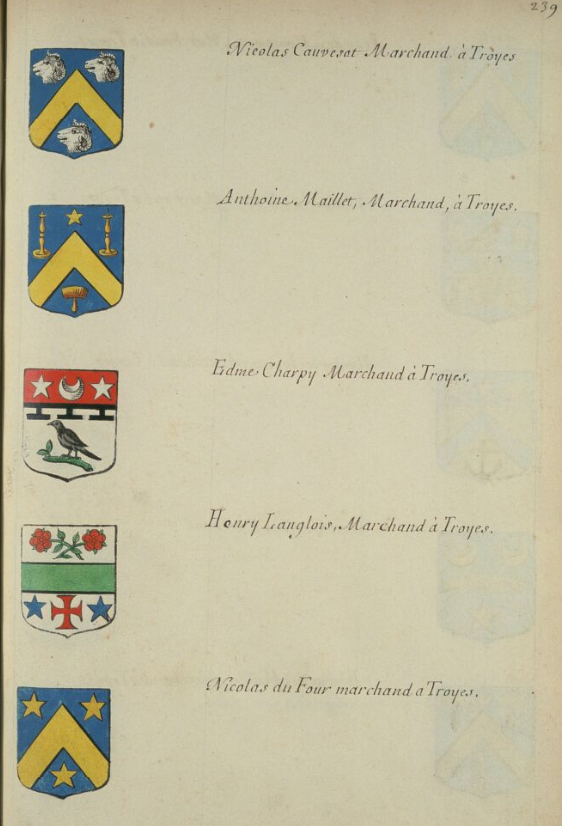 239
Nicolas Cauvesat Marchand à Troyes
Anthoine Maillet, Marchand, à Troyes.
Edme Charpy Marchand à Troyes.
Henry Langlois, Marchand à Troyes.
Nicolas du Four marchand a Troyes.